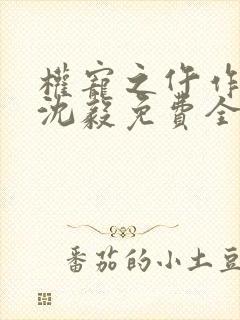 權寵之仵作
沈毅免費全
番茄的小土豆